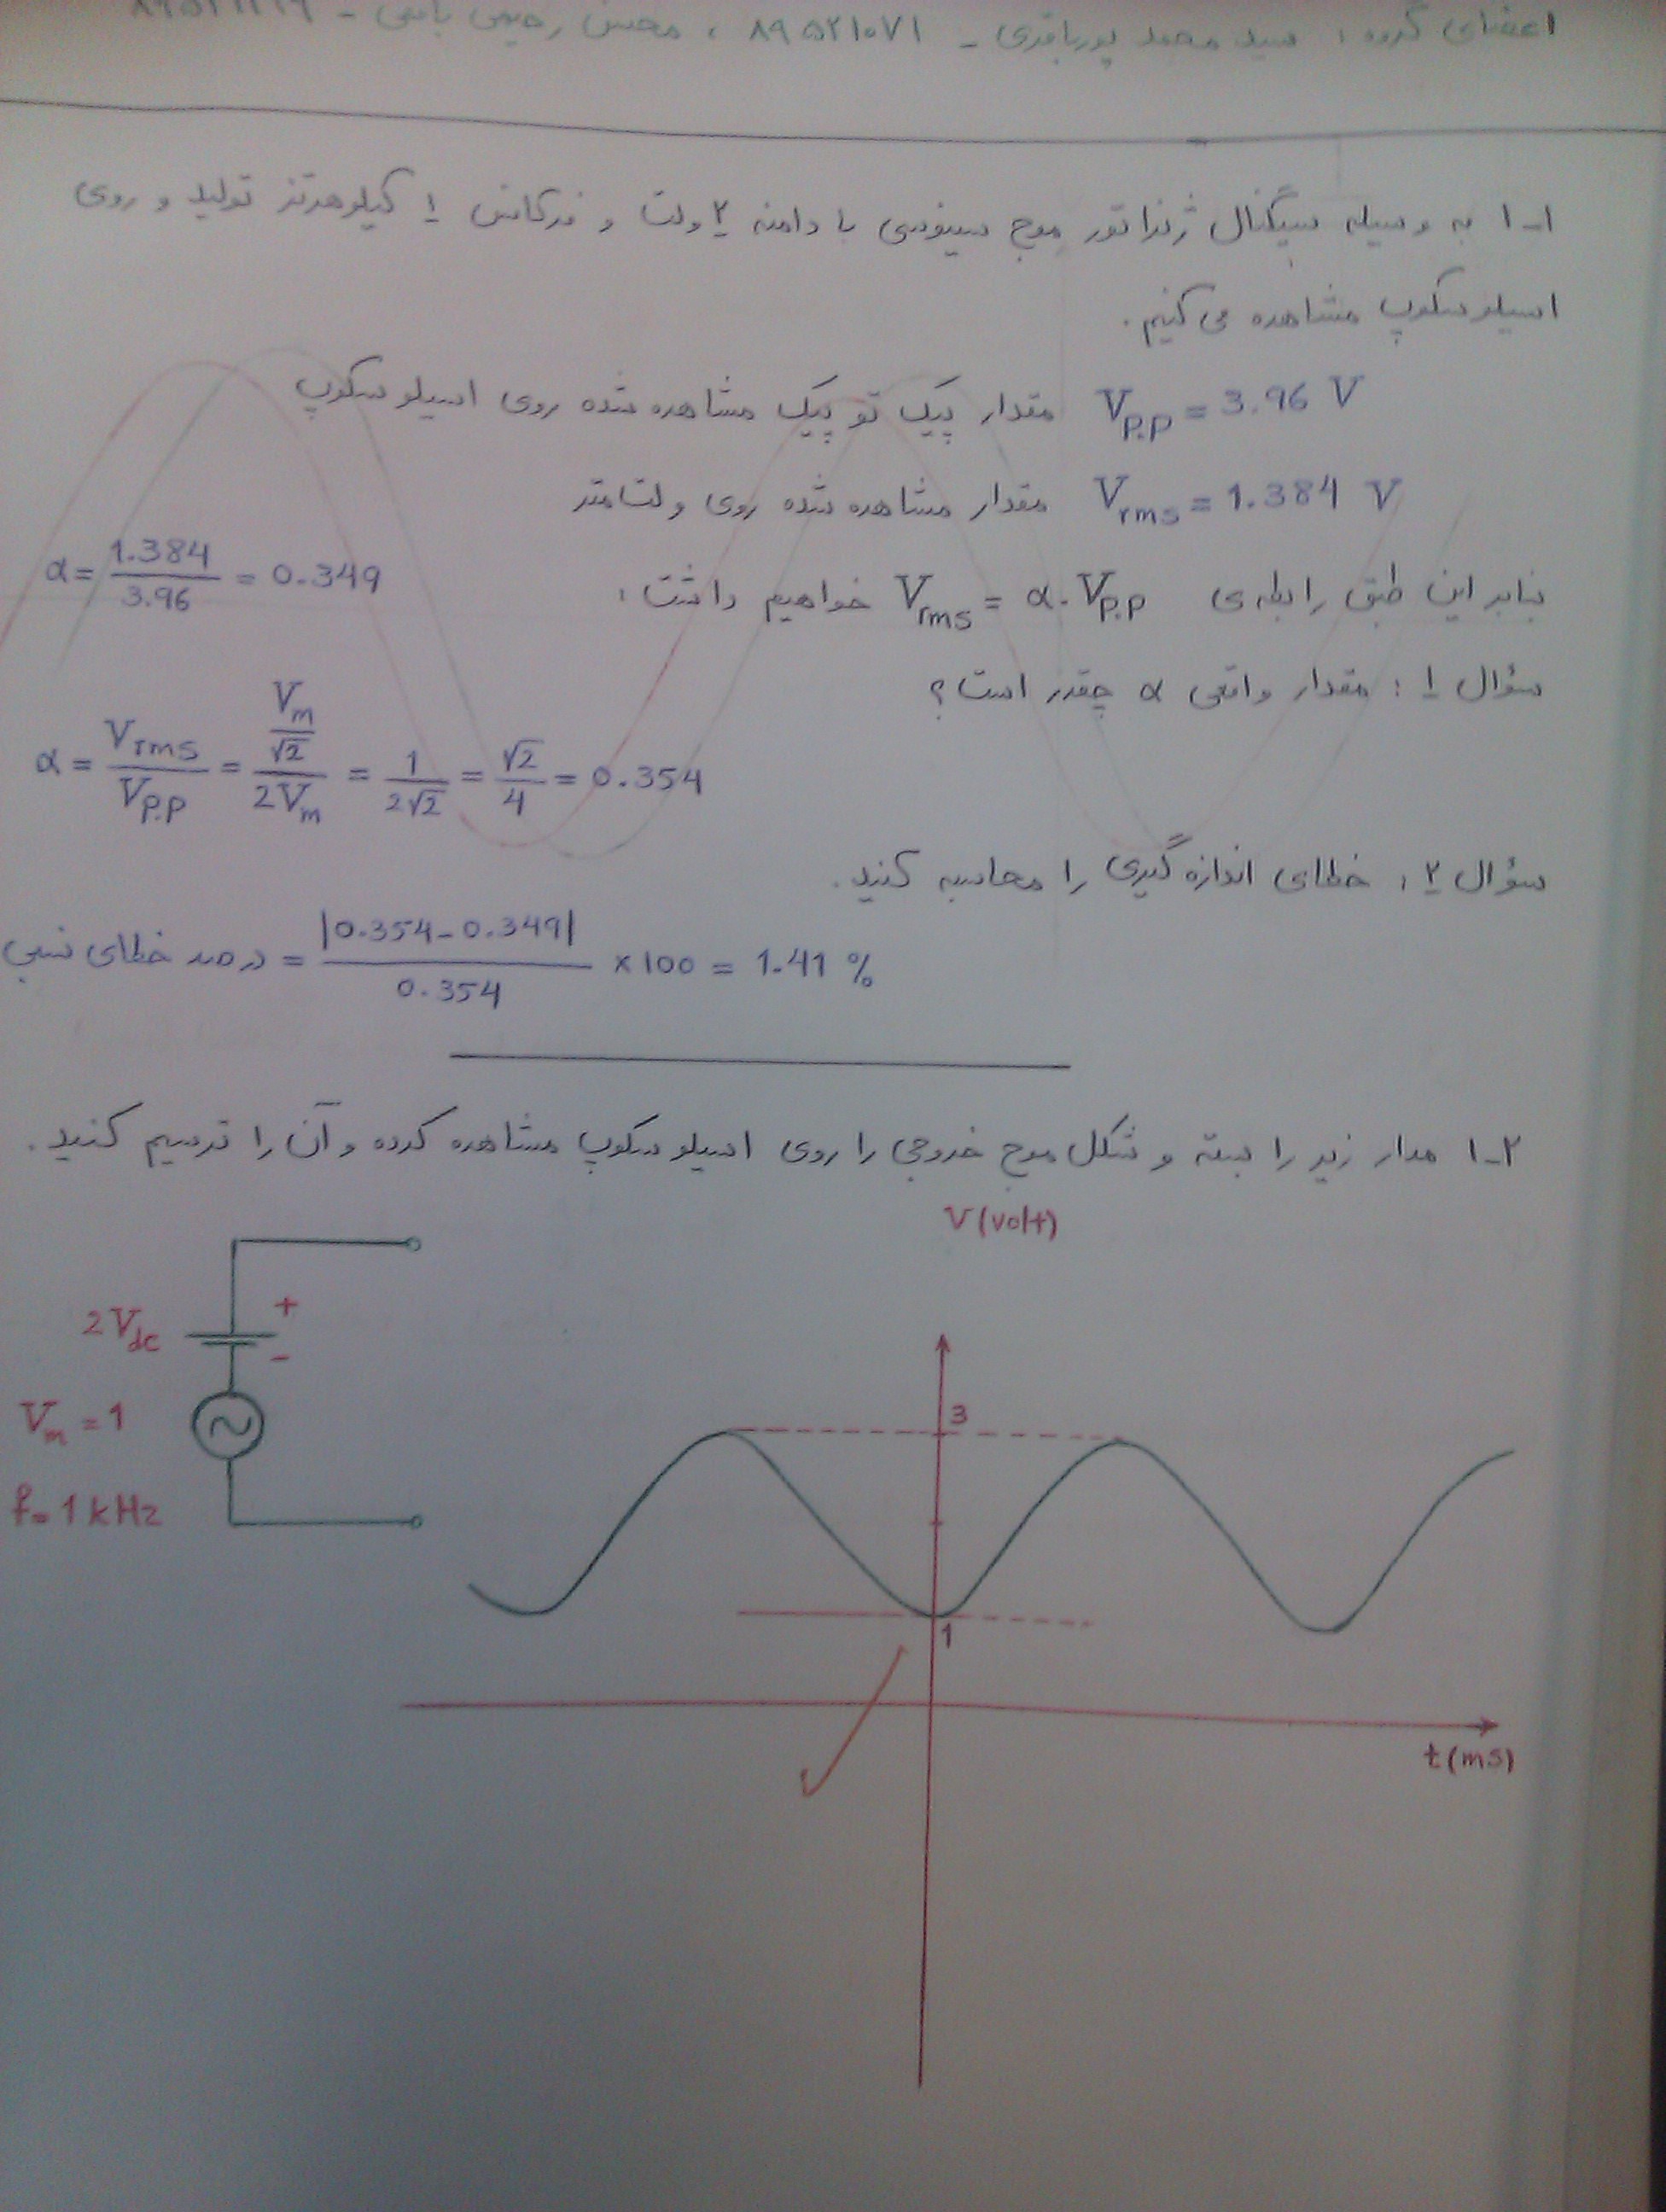 اعضای گروه : سید محمد پورباقری - ۸۹۵۲۱۰۷۱ ، محسن رحیمی
۱-۱ به وسیله سیگنال ژنراتور موج سینوسی با دامنه ۲ ولت و فرکانس ۱ کیلوهرتز تولید و روی
اسیلوسکوپ مشاهده می کنیم.
Vp.p = 3.96 V مقدار پیک تو پیک مشاهده شده روی اسیلوسکوپ
Vrms = 1.384 V مقدار مشاهده شده روی ولت‌متر
بنابر این طبق رابطه ی Vrms = α . Vp.p خواهیم داشت :
α = 1.384 / 3.96 = 0.349
سؤال ۱ : مقدار واقعی α چقدر است ؟
α = Vrms / Vp.p = (Vm / √2) / 2Vm = 1 / 2√2 = √2 / 4 = 0.354
سؤال ۲ : خطای اندازه گیری را محاسبه کنید.
درصد خطای نسبی = |0.354 - 0.349| / 0.354 × 100 = 1.41 %
۱-۲ مدار زیر را بسته و شکل موج خروجی را روی اسیلوسکوپ مشاهده کرده و آن را ترسیم کنید.
V (volt)
2Vdc
+
-
Vm = 1
f = 1 kHz
3
1
t (ms)